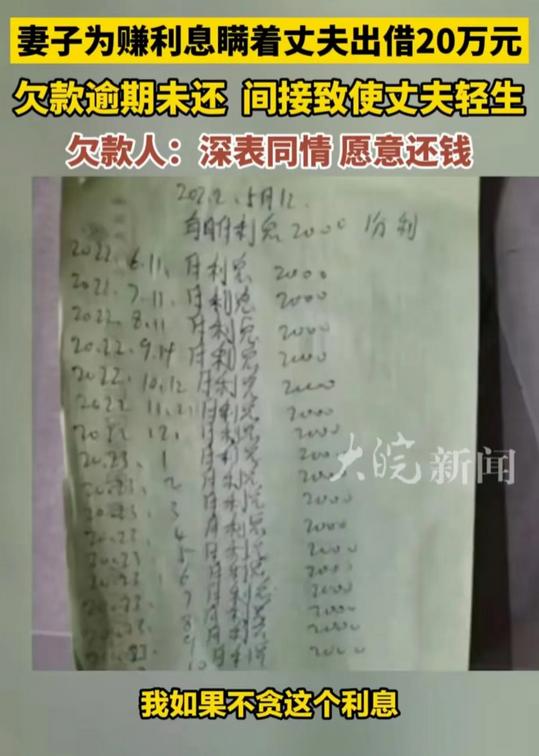 妻子为赚利息瞒着丈夫出借20万元
欠款逾期未还 间接致使丈夫轻生
欠款人：深表同情 愿意还钱
2022.5月12.
每月利息2000 1分利
2022.6.11. 月利息 2000
2022.7.11. 月利息 2000
2022.8.11 月利息 2000
2022.9.14 月利息 2000
2022.10.12 月利息 2000
2022 11.21 月利息 2000
2022 12. 月利息 2000
2023. 1 月利息 2000
2023. 2 月利息 2000
2023. 3 月利息 2000
2023. 4 月利息 2000
2023. 5 月利息 2000
2023. 6 月利息 2000
2023. 7 月利息 2000
2023. 8 月利息 2000
2023. 9 月利息 2000
10 月利息 2000
大皖新闻
我如果不贪这个利息